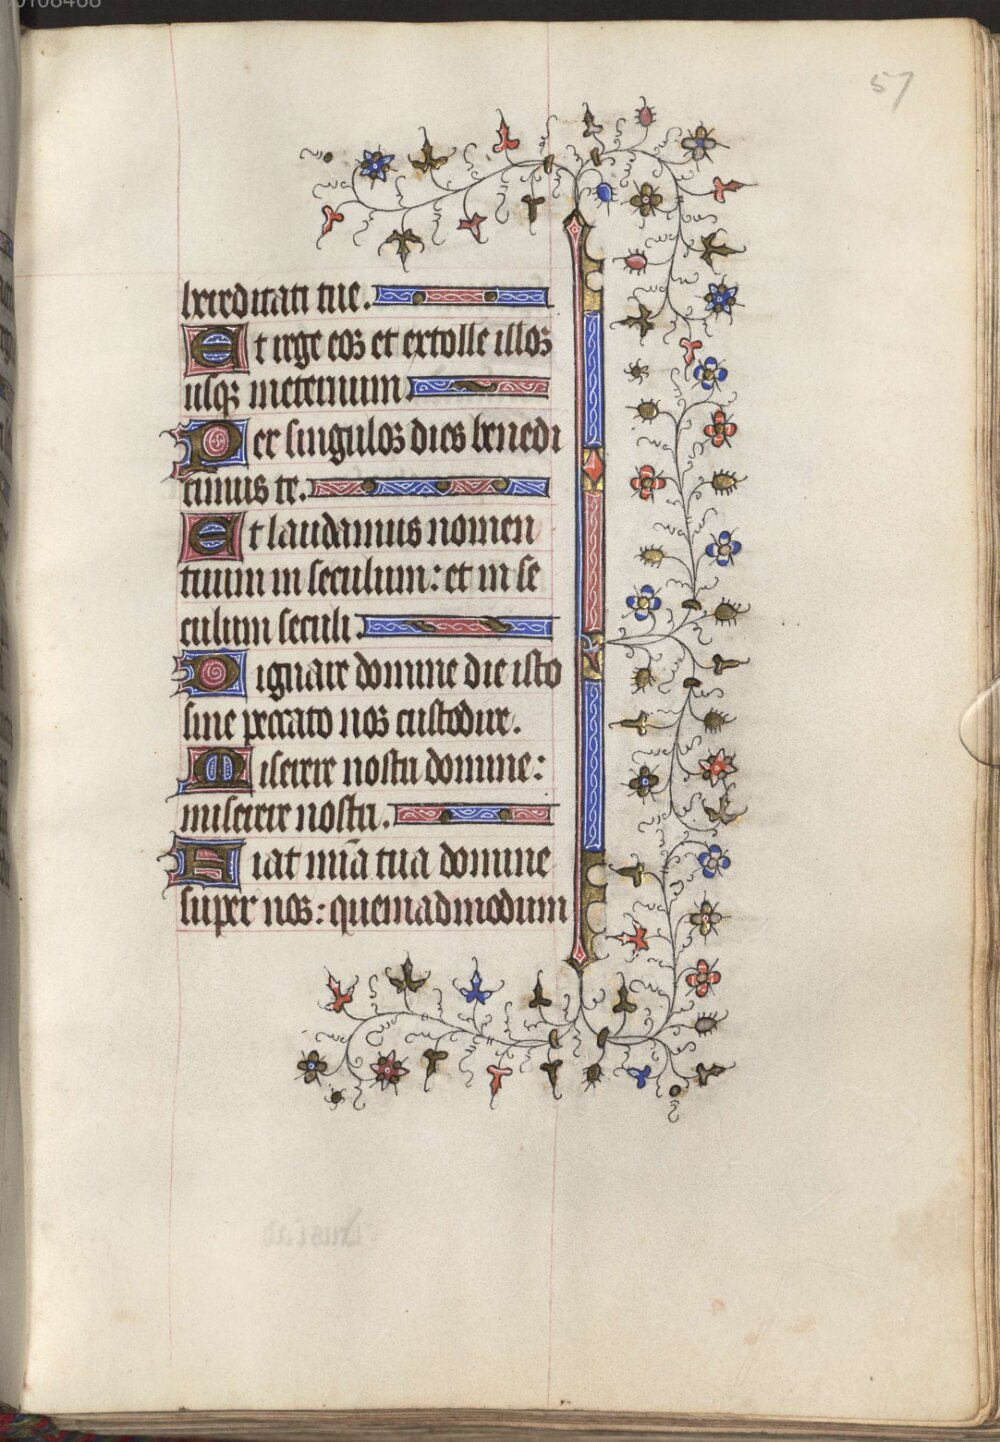 57
hereditati tue.
Et rege eos et extolle illos
usq; ineternum.
Per singulos dies benedi
cimus te.
Et laudamus nomen
tuum in seculum: et in se
culum seculi.
Dignare domine die isto
sine peccato nos custodire.
Miserere nostri domine:
miserere nostri.
Fiat mīa tua domine
super nos: quemadmodum